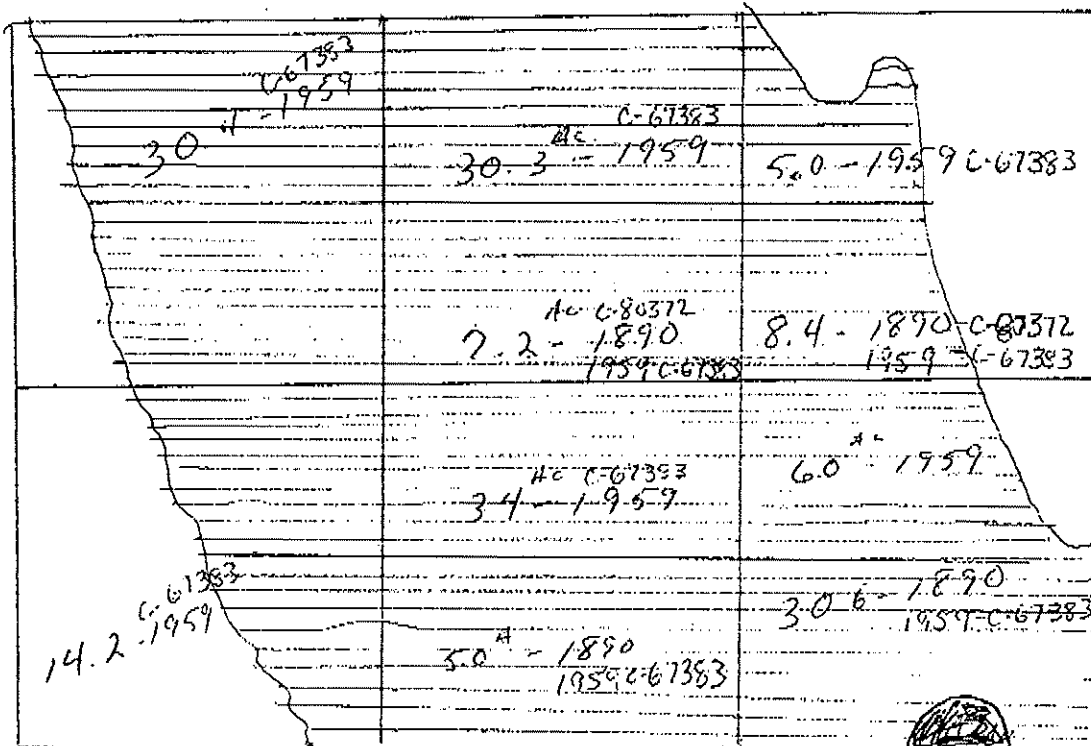 C-67383
30 A - 1959
Ac. C-67383
30.3 - 1959
5.0 - 1959 C-67383
Ac C-80372
7.2 - 1890
1959 C-67383
8.4 - 1890-C-80372
1959 C-67383
Ac C-67383
34 - 1959
Ac
6.0 - 1959
C-67383
14.2 - 1959
A
5.0 - 1890
1959 C-67383
30 6 - 1890
1959-C-67383